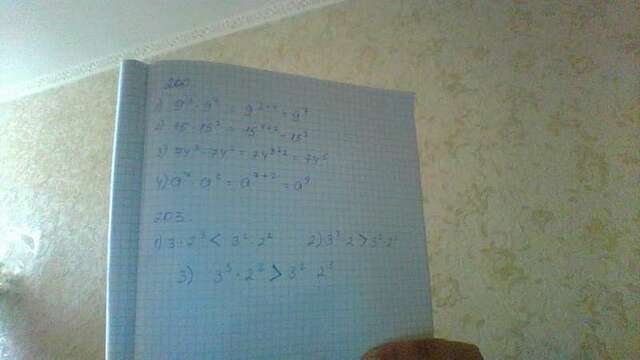 200.
1) 9³ · 9⁴ = 9³⁺⁴ = 9⁷
2) 15 · 15² = 15¹⁺² = 15³
3) 74³ · 74² = 74³⁺² = 74⁵
4) a⁷ · a² = a⁷⁺² = a⁹
203.
1) 3 · 2³ < 3² · 2² 2) 3³ · 2 > 3² · 2²
3) 3³ · 2² > 3² · 2³